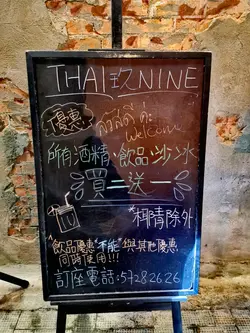 THAI玖NINE
優惠 สวัสดี ค่ะ
Welcome
所有酒精、飲品、沙冰
買二送一
*椰青除外
*飲品優惠"不能"與其他優惠
同時使用!!!
訂座電話:57282626